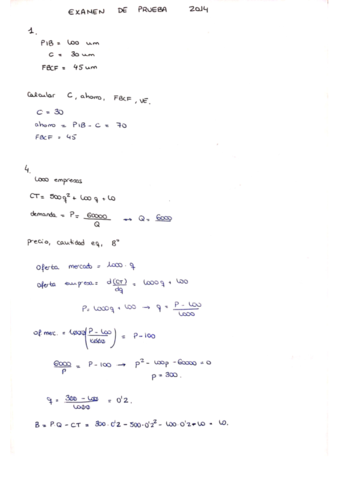 EXAMEN DE PRUEBA 2014
1.
PIB = 100 um
C = 30 um
FBCF = 45 um
Calcular C, ahorro, FBCF, VE.
C = 30
ahorro = PIB - C = 70
FBCF = 45
4.
1000 empresas
CT = 500q² + 100q + 10
demanda = P = 60000/Q → Q = 6000
precio, cantidad eq, Bº
Oferta mercado = 1000 · q
Oferta empresa = d(CT)/dq = 1000q + 100
P = 1000q + 100 → q = P - 100/1000
Of mec. = 1000(P - 100/1000) = P - 100
6000/P = P - 100 → p² - 100p - 60000 = 0
p = 300
q = 300 - 100/1000 = 0'2
B = PQ - CT = 300·0'2 - 500·0'2² - 100·0'2 - 10 = 10.